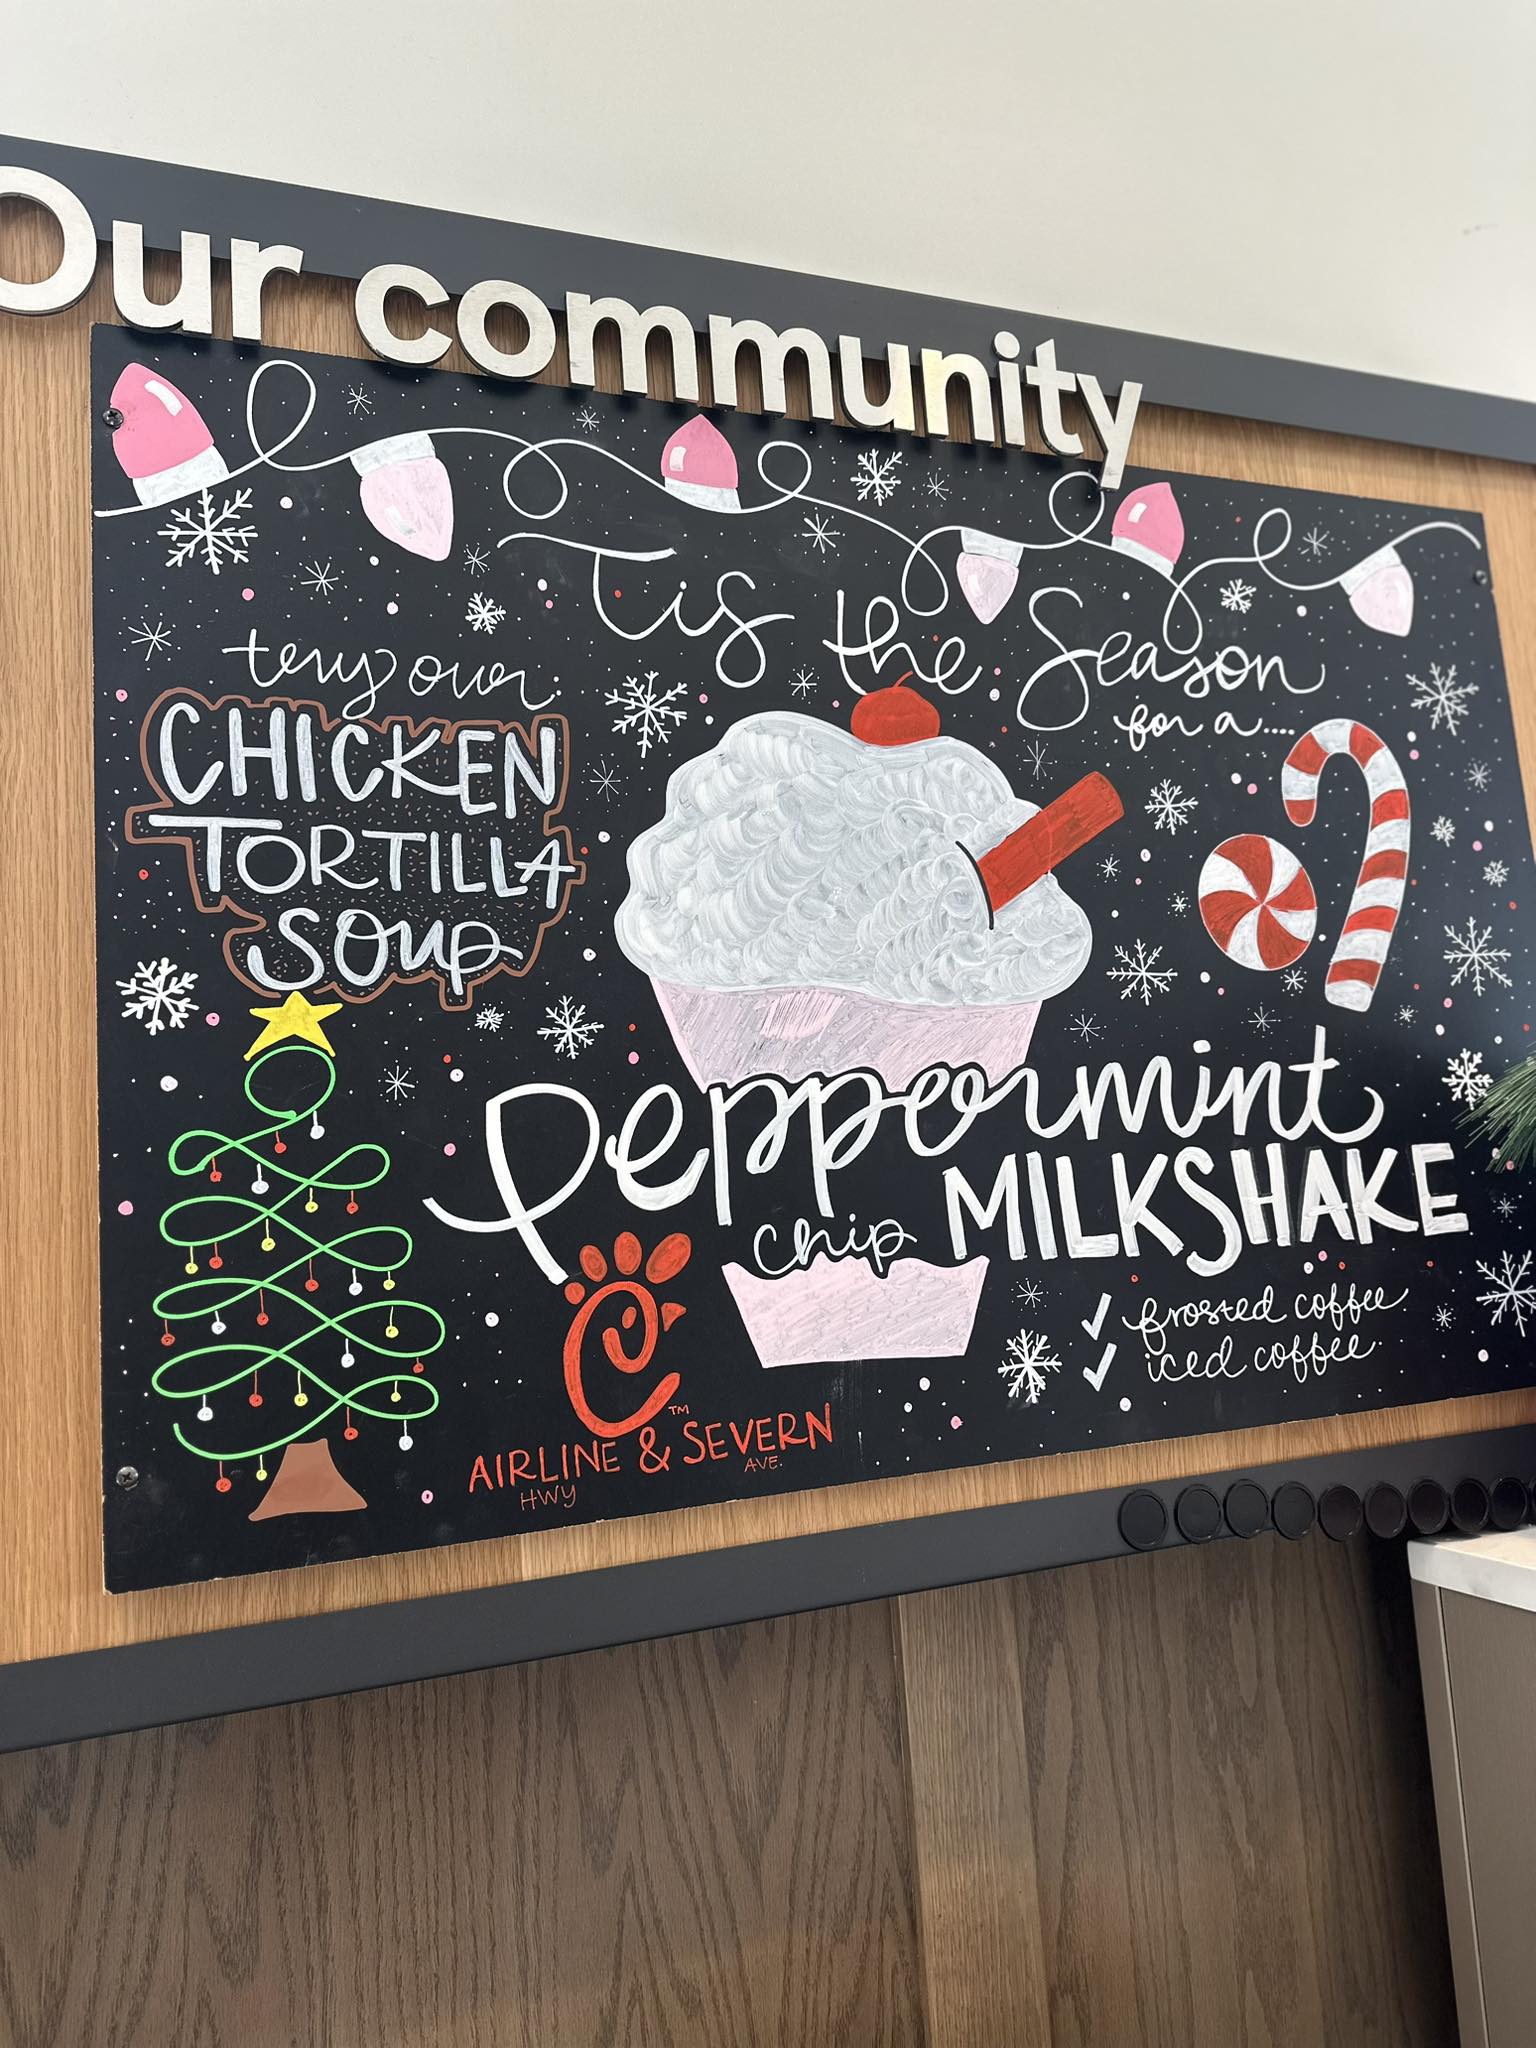 Our community
Tis the Season
for a....
try our
CHICKEN
TORTILLA
SOUP
Peppermint
chip MILKSHAKE
✓ frosted coffee
✓ iced coffee
C™
AIRLINE & SEVERN
HWY AVE.